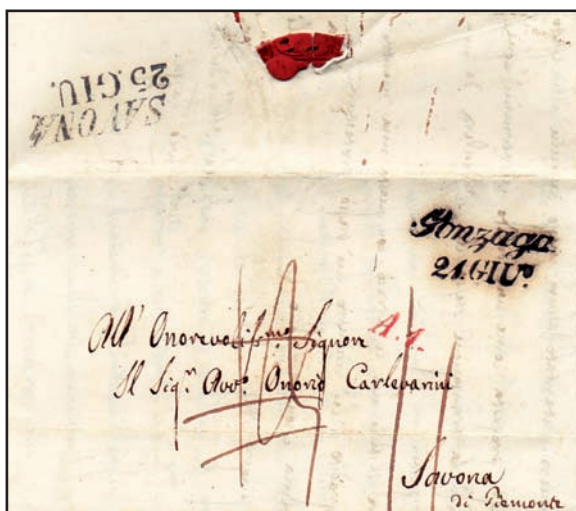 SAVONA
25.GIU.
Gonzaga
21.GIU°.
A.1.
All' Onorevolissmo Signore
Il Sigr. Avvo. Onorio Carlevarini
Savona
di Piemonte